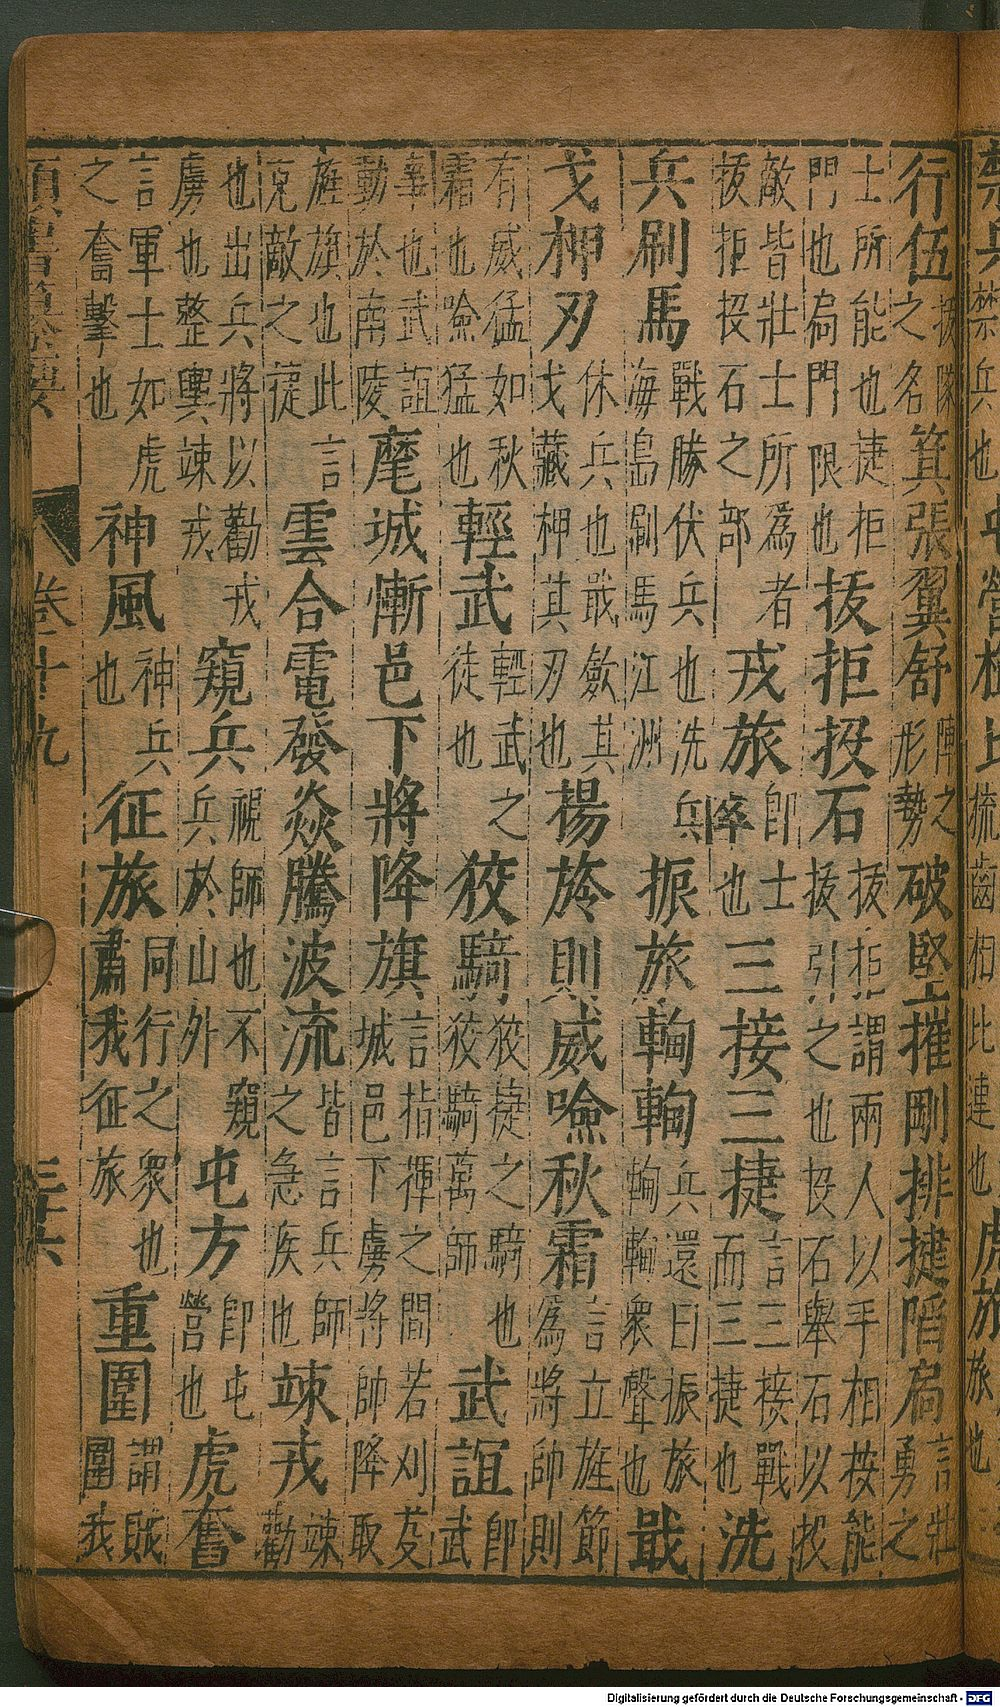 禁兵禁兵也營櫛比梳齒相比連也虎旅旅也
行伍按隊之名箕張翼舒陣之形勢破堅摧剛排揵陷扃言壯勇之
士所能也揵拒門也扃門限也拔拒投石拔拒謂兩人以手相按能拔引之也投石舉石以投
敵皆壯士所為者拔拒投石之部戎旅即士率也三接三捷言三接戰而三捷也洗
兵刷馬戰勝伏兵也洗兵海島刷馬江洲振旅輷輷兵還曰振旅輷輷衆聲也戢
戈柙刃休兵也戢斂其戈藏柙其刃也揚旍則威噞秋霜言立旌節為將帥則
有威猛如秋霜也噞猛也輕武輕武之徒也狡騎狡捷之騎也狡騎萬師武誼即武
華也武誼動於南陵麾城慚邑下將降旗言指揮之間若刈芟城邑下虜將帥降取
旌旗也此言克敵之捷雲合電發焱騰波流皆言兵師之急疾也竦戎竦勸
也出兵將以勸戎虜也整輿竦戎窺兵視師也不窺兵於山外屯方即屯營也虎奮
言軍士如虎之奮擊也神風神兵也征旅同行之衆也肅我征旅重圍謂賊圍我
卷十九 三六
Digitalisierung gefördert durch die Deutsche Forschungsgemeinschaft - DFG